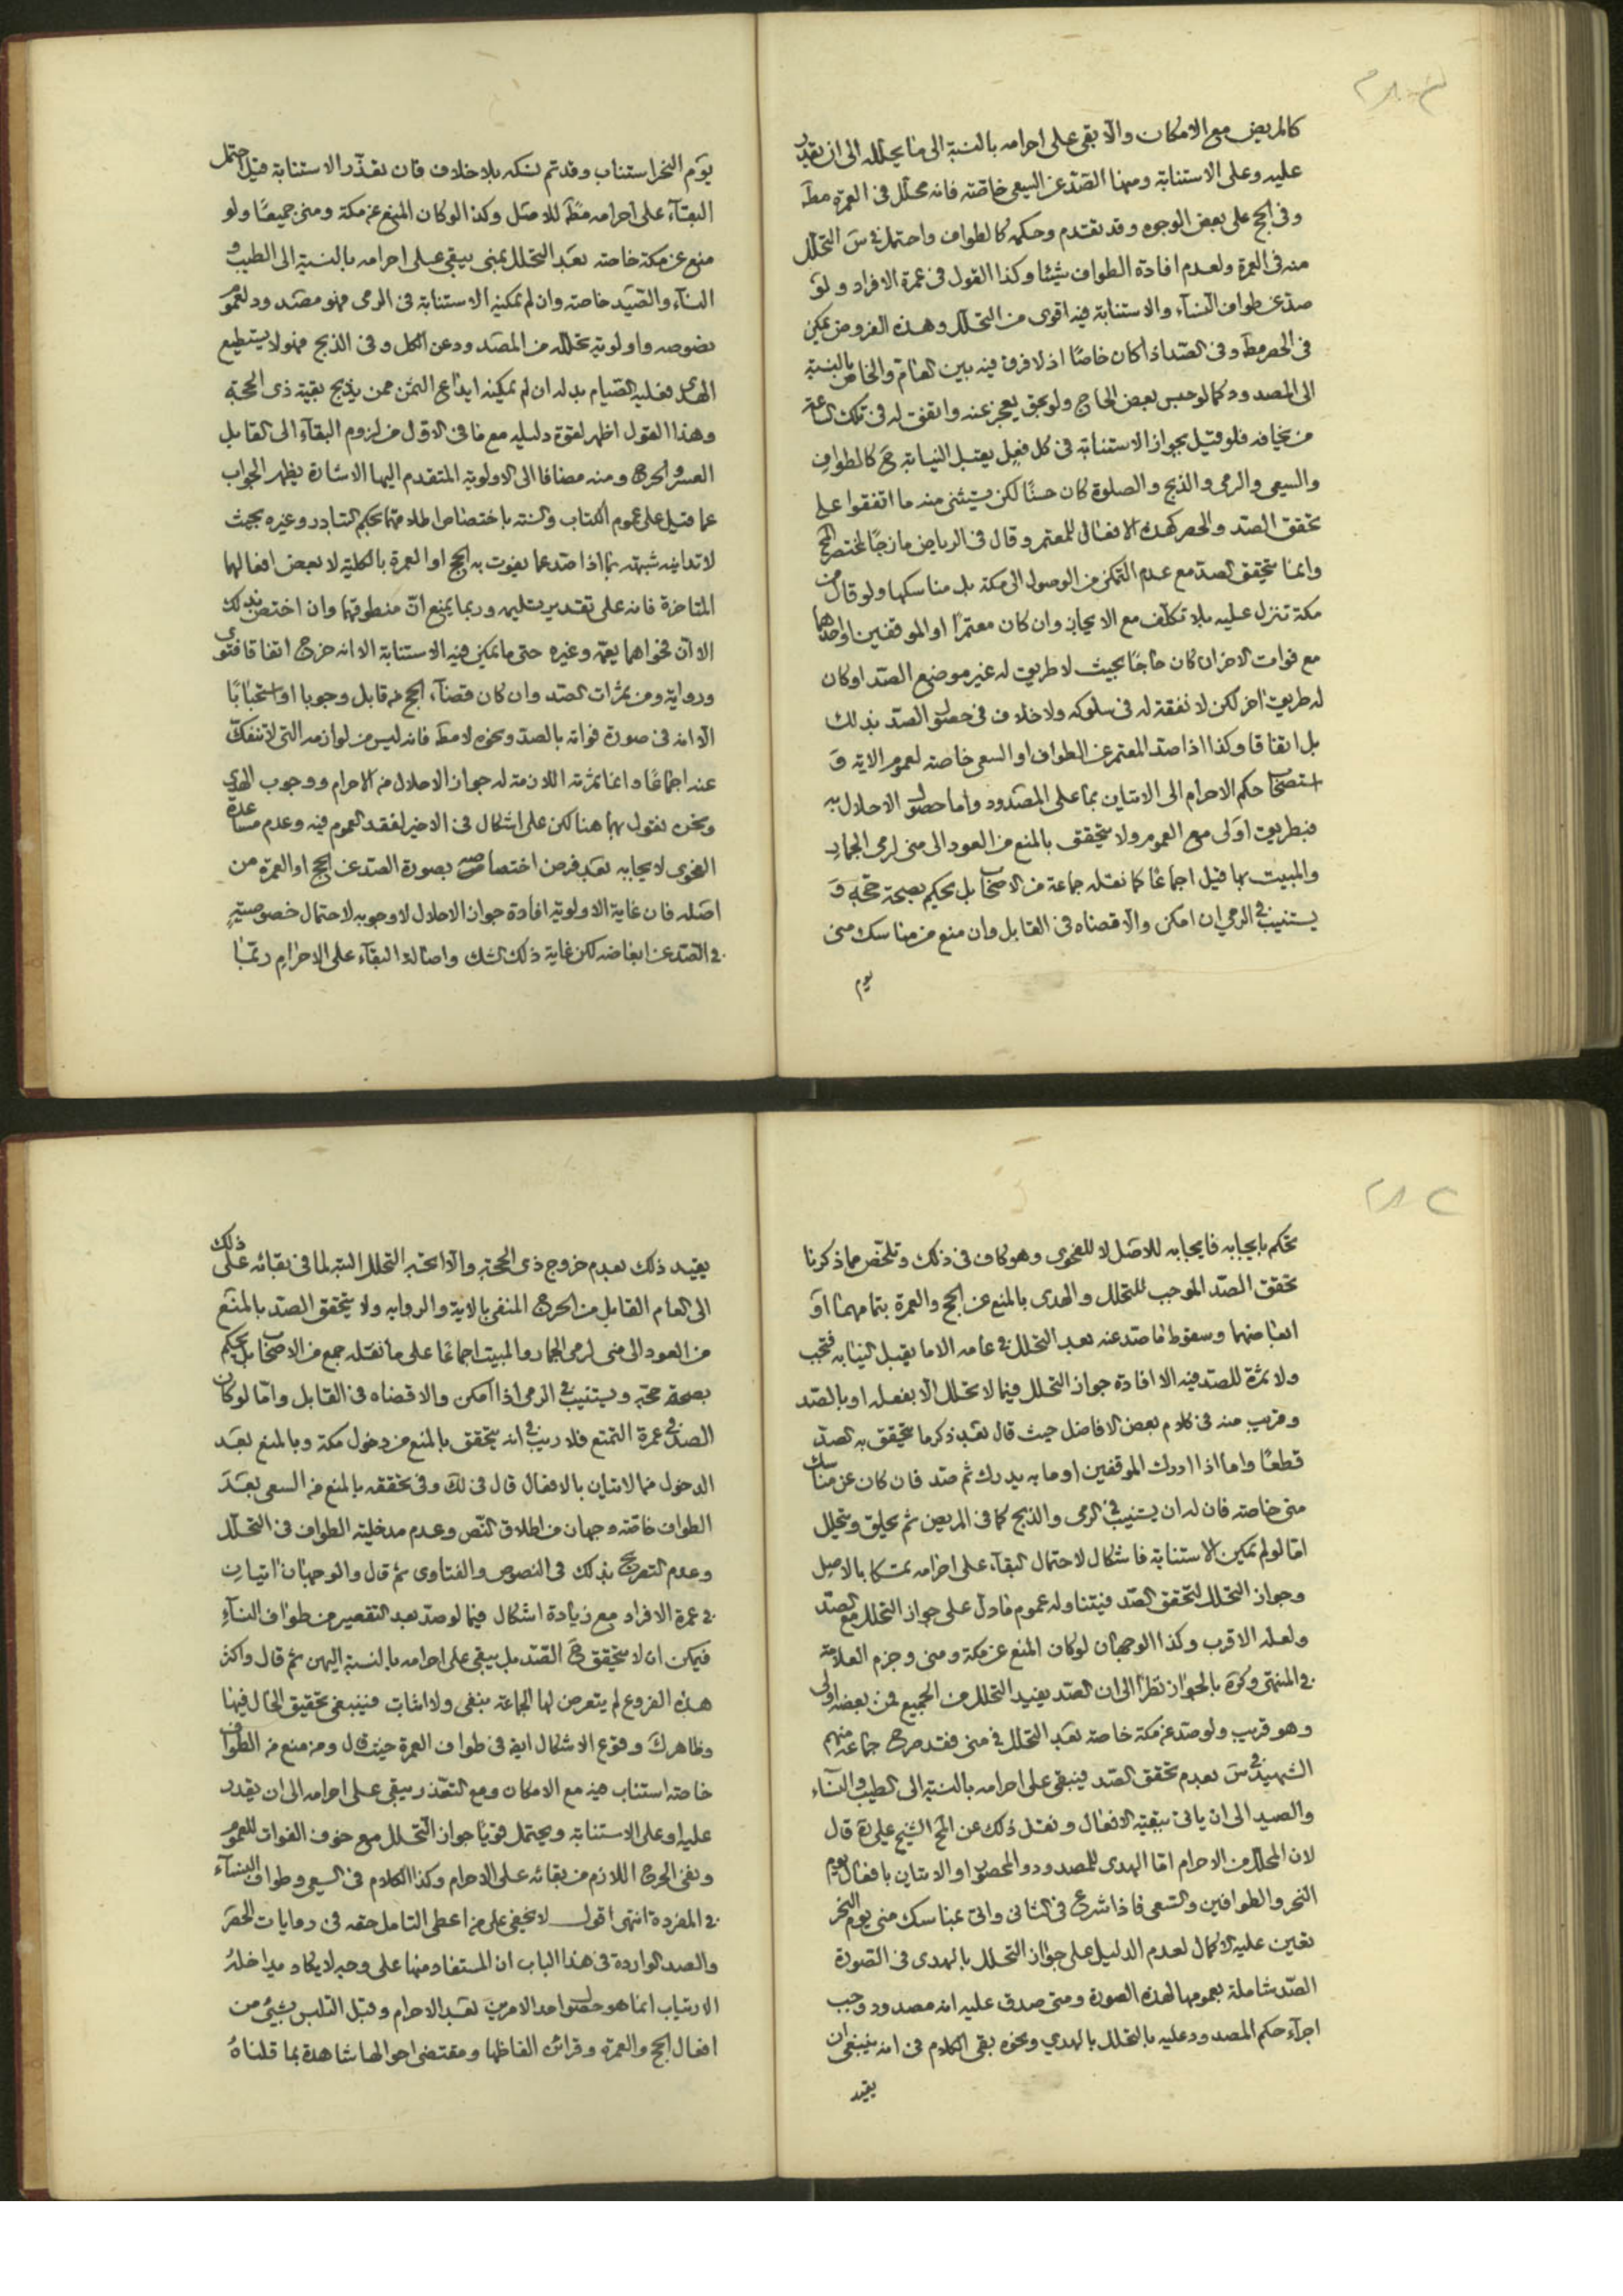 كالمريض مع الامكان والا بقى على احرامه بالنسبة الى ما يحلله الى ان يقدر
عليه وعلى الاستنابة ومنها الصّد عن السعى خاصّته فانه محلّل فى العمرة مطَ
وفى الحج على بعض الوجوه وقد تقدم وحكمه كالطواف واحتمل فى سَ التحلّل
منه فى العمرة ولعدم افادة الطواف شيئا وكذا القول فى عمرة الافراد ولوَ
صدّ عن طواف النسآء والاستنابة فيه اقوى من التحلّل وهذه الفروض يمكن
فى الحصر مطَ وفى الصّد اذا كان خاصًا اذ لا فرق فيه بين العام والخاص بالنسبة
الى المصدود كما لو حبس بعض الحاج ولو بحق يعجز عنه واتفق له فى تلك الساعة
من يخافه فلو قيل بجواز الاستنابة فى كل فعل يقبل النيابة حَ كالطواف
والسعى والرمى والذبح والصلوة كان حسنًا لكن يستثنى منه ما اتفقوا على
تحقق الصّد والحصر كهذه الافعال للمعتمر وقال فى الرياض مازجًا لمختصر الحج
وانما يتحقق الصد مع عدم التمكن من الوصول الى مكة بل مناسكها ولو قال من
مكة تنزل عليه بلا تكلّف مع الايجاز وان كان معتمرًا او الموقفين او احدهما
مع فوات الاخر ان كان حاجًا بحيث لا طريق له غير موضع الصّد او كان
له طريق اخر لكن لا نفقة له فى سلوكه ولا خلاف فى حصول الصّد بذلك
بل اتفاقا وكذا اذا صد المعتمر عن الطواف او السعى خاصته لعموم الاية وَ
استصحاب حكم الاحرام الى الاتيان بما على المصدود واما حصول الاحلال به
فبطريق اولى مع العموم ولا يتحقق بالمنع من العود الى منى لرمى الجمار
والمبيت بها قيل اجماعًا كما نقله جماعة من الاصحاب بل يحكم بصحة حجّه وَ
يستنيب فى الرمى ان امكن والا قضاه فى القابل وان منع من مناسك منى
يوم
يوم النحر استناب وقد تم نسكه بلا خلاف فان تعذّر الاستنابة قيل احتمل
البقآء على احرامه مطَ للاصل وكذا لو كان المنع عن مكة ومنى جميعًا ولو
منع عن مكة خاصته بعد التحلل بمنى يبقى على احرامه بالنسبة الى الطيب و
النسآء والصّيد خاصته وان لم يمكنه الاستنابة فى الرمى فهو مصدود لعموم
نصوصه واولوية تحلله من المصدود عن الكل وفى الذبح فهو لا يستطيع
الهدى فعليه الصّيام بدله ان لم يمكنه ايداع الثمن ممن يذبح بقية ذى الحجة
وهذا القول اظهر لقوة دليليه مع ما فى الاول من لزوم البقآء الى القابل
العسر والحرج ومنه مضافا الى الاولوية المتقدم اليها الاشارة يظهر الجواب
عما قيل على عموم الكتاب والسنة باختصاص اطلاقهما بحكم التبادر وغيره بحيث
لا تدانيه شبهته بما اذا صد عما يفوت به الحج او العمرة بالكلية لا بعض افعالهما
المتاخرة فانه على تقدير تسليمه وربما يمنع انّ منطوقهما وان اختص بذلك
الا ان فحواهما يعمّه وغيره حتى ما يمكن فيه الاستنابة الا انه خرج اتفاقا فتوى
ورواية ومن ثمرات الصّد وان كان قضآء الحج من قابل وجوبا او استحبابًا
الا انه فى صورة فواته بالصد ونحوه لا مطَ فانه ليس من لوازمه التى لا تنفكّ
عنه اجماعًا وانما ثمرته اللازمة له جواز الاحلال من الاحرام ووجوب الهدى
ونحن نقول بهما هنا لكن على اشكال فى الاخير لفقد العموم فيه وعدم مساعدة
الفحوى لايجابه بعد فرض اختصاصه بصورة الصدّ عن الحج او العمرة من
اصله فان غاية الاولوية افادة جواز الاحلال لا وجوبه لاحتمال خصوصيّةٍ
فى الصّد عن ابعاضه لكن غاية ذلك الشك واصالة البقآء على الاحرام ربّما
تحكم بايجابه فايجابه للاصل لا للفحوى وهو كاف فى ذلك وتلخّص مما ذكرنا
تحقق الصّد الموجب للتحلل والهدى بالمنع عن الحج والعمرة بتمامهما اوَ
ابعاضهما وسقوط ما صد عنه بعد التحلل فى عامه الا ما يقبل النيابة فتجب
ولا ثمرة للصد فيه الا افادة جواز التحلل فيما لا تحلل الا بفعله او بالصّد
وقريب منه فى كلام بعض الافاضل حيث قال بعد ذكر ما يتحقق به الصدّ
قطعًا واما اذا ادرك الموقفين او ما به يدرك ثم صد فان كان عن مناسك
منى خاصته فان له ان يستنيب فى الرمى والذبح كما فى المريض ثم يحلق ويتحلل
امّا لو لم يمكن الاستنابة فاشكال لاحتمال البقآء على احرامه تمسّكا بالاصل
وجواز التحلل لتحقق الصّد فيتناوله عموم ما دلّ على جواز التحلل مع الصّد
ولعله الاقرب وكذا الوجهان لو كان المنع عن مكة ومنى وجزم العلامة
فى المنتهى وكرة بالجواز نظرا الى ان الصّد يفيد التحلل من الجميع فمن بعضه اولى
وهو قريب ولو صد عن مكة خاصته بعد التحلل فى منى فقد صرح جماعة منهم
الشهيد فى سَ بعدم تحقق الصّد فيبقى على احرامه بالنسبة الى الطيب والنسآء
والصيد الى ان ياتى ببقية الافعال ونقل ذلك عن المح الشيخ على ره قال
لان المحلل من الاحرام امّا الهدى للمصدود والمحصور او الاتيان بافعال يوم
النحر والطوافين والسّعى فاذا شرع فى الثانى واتى بمناسك منى يوم النحر
تعين عليه الاكمال لعدم الدليل على جواز التحلل بالهدى فى الصّورة
الصّد شاملة بعمومها لهذه الصورة ومتى صدق عليه انه مصدود وجب
اجرآء حكم المصدود عليه بالتحلل بالهدي ونحوه بقى الكلام فى انه ينبغى ان
يقيد
يقيد ذلك بعدم خروج ذى الحجة والا اتجه التحلل البتة لما فى بقائه على ذلك
الى العام القابل من الحرج المنفى بالاية والرواية ولا يتحقق الصّد بالمنع
من العود الى منى لرمى الجمار والمبيت اجماعًا على ما نقله جمع من الاصحاب بل يحكم
بصحة حجّه ويستنيب فى الرمى اذا امكن والا قضاه فى القابل وامّا لو كان
الصدّ فى عمرة التمتع فلا ريب فى انه يتحقق بالمنع من دخول مكة وبالمنع بعد
الدخول من الاتيان بالافعال قال فى لك وفى تحققه بالمنع من السعى بعد
الطواف خاصّته وجهان من اطلاق النّص وعدم مدخلية الطواف فى التحلّل
وعدم التصريح بذلك فى النصوص والفتاوى ثم قال والوجهان اتيان
فى عمرة الافراد مع زيادة اشكال فيما لو صد بعد التقصير من طواف النسآء
فيمكن ان لا يتحقق حَ الصّد بل يبقى على احرامه بالنسبة اليهن ثم قال واكثر
هذه الفروع لم يتعرض لها الجماعة بنفى ولا اثبات فينبغى تحقيق الحال فيها
وظاهر ك وقوع الاشكال ايض فى طواف العمرة حيث قال ومن منع من الطواف
خاصته استناب فيه مع الامكان ومع التعذر يبقى على احرامه الى ان يقدر
عليه او على الاستنابة ويحتمل قويًا جواز التحلل مع خوف الفوات للعموم
ونفى الحرج اللازم من بقائه على الاحرام وكذا الكلام فى السعى وطواف النسآء
فى المفردة انتهى اقول لا يخفى على من اعطى التامل حقه فى روايات الحصر
والصد الواردة فى هذا الباب ان المستفاد منها على وجه لا يكاد يداخله
الارتياب انما هو حصول احد الامرين بعد الاحرام وقبل التلبس بشئ من
افعال الحج والعمرة وقرائن الفاظها ومقتضى احوالها شاهدة بما قلناه